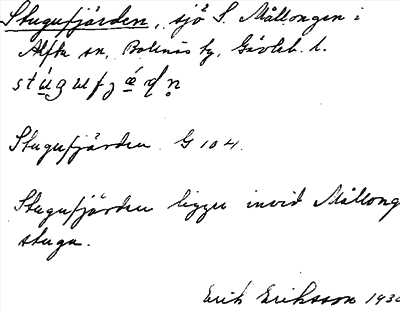 Stugufjärden, sjö S. Mållongen i
Alfta sn, Bollnäs tg, Gävleb. l.
Stugufjärden G 104.
Stugufjärden ligger invid Mållong
stuga.
Erik Eriksson 193